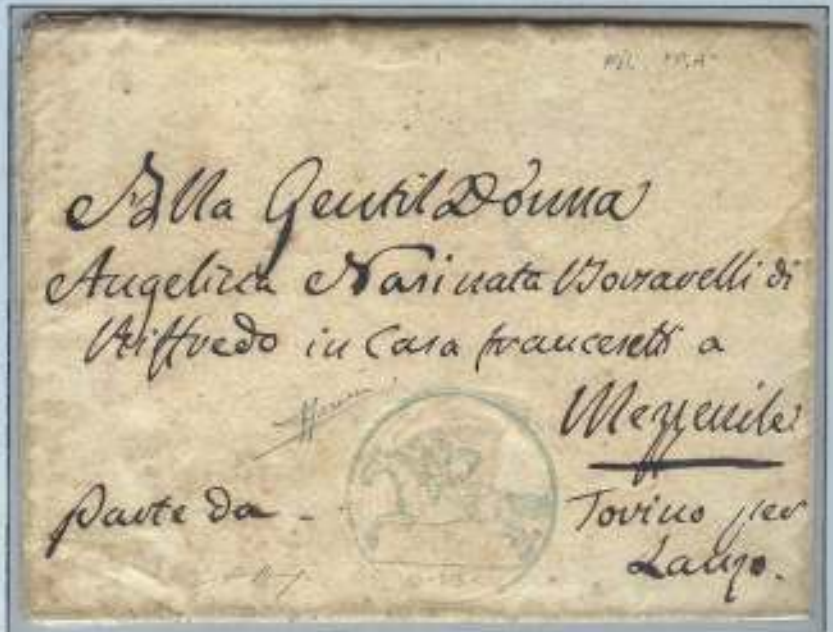 Alla Gentil Donna
Angelica Nasi nata Borsarelli di
Riffredo in Casa francesetti a
Mezzenile
parte da - Torino per
Lanzo.